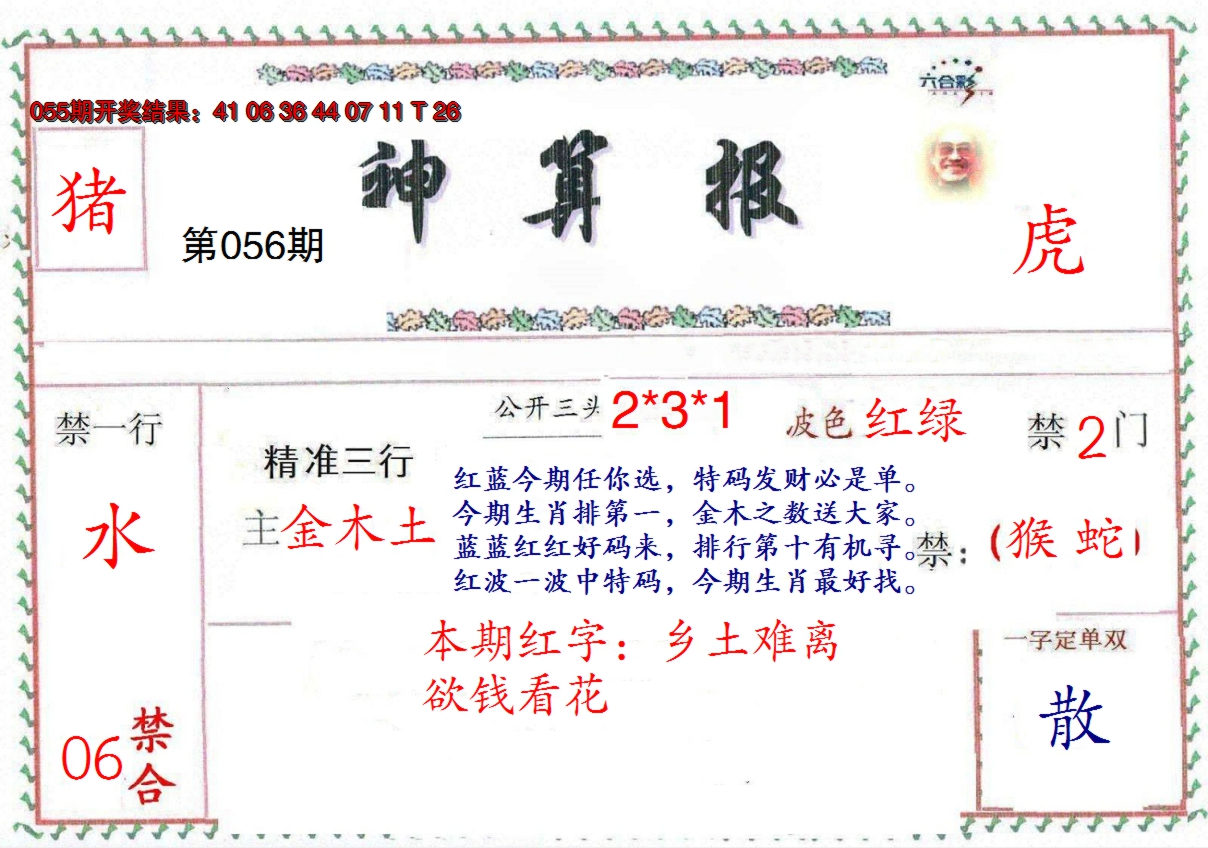 六合彩
055期开奖结果：41 06 36 44 07 11 T 26
神算报
猪
第056期
虎
公开三头 2*3*1
波色 红绿
禁一行
禁2门
精准三行
水
主金木土
红蓝今期任你选，特码发财必是单。
今期生肖排第一，金木之数送大家。
蓝蓝红红好码来，排行第十有机寻。
红波一波中特码，今期生肖最好找。
禁：（猴 蛇）
本期红字：乡土难离
欲钱看花
一字定单双
散
06 禁合